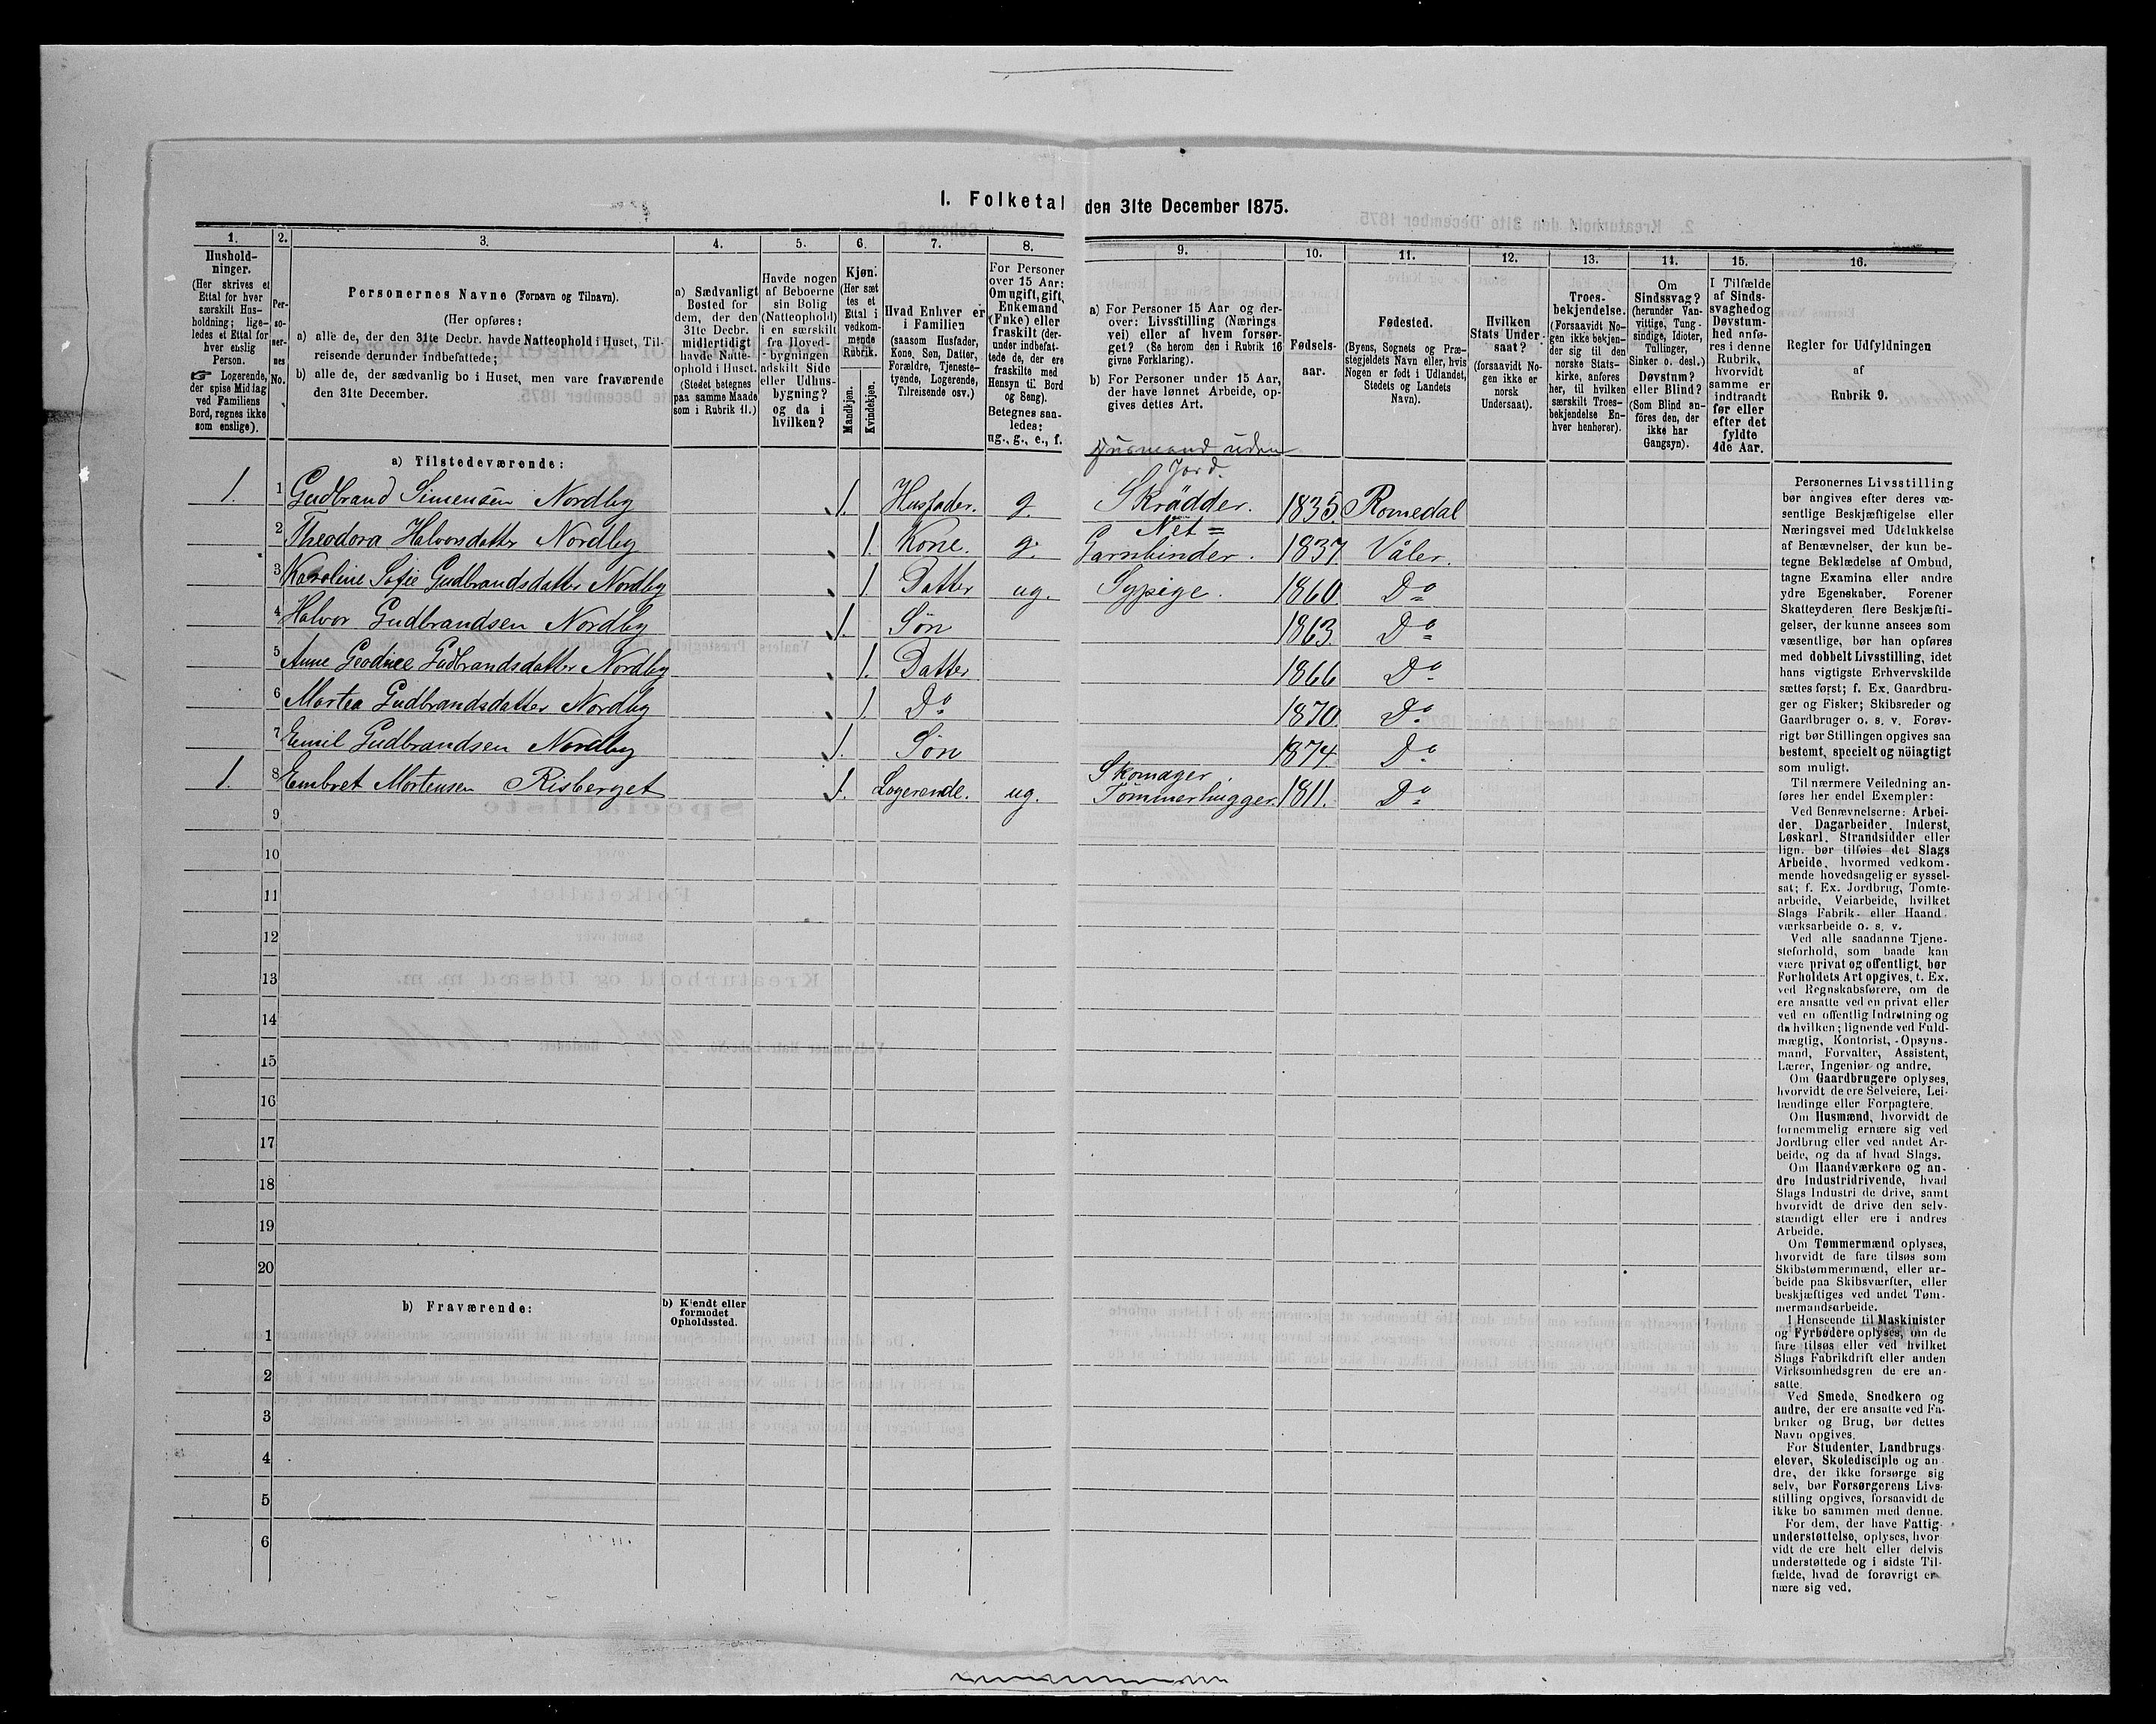 I. Folketal den 31te December 1875.
1. 2. 3. 4. 5. 6. 7. 8. 9. 10. 11. 12. 13. 14. 15. 16.
Hushold-
ninger.
(Her skrives et
Ettal for hver
særskilt Hus-
holdning; lige-
ledes et Ettal for
hver enslig
Person.
☞ Logerende,
der spise Middag
ved Familiens
Bord, regnes ikke
som enslige).
Per-
so-
ner-
nes
No.
Personernes Navne (Fornavn og Tilnavn).
(Her opføres:
a) alle de, der den 31te Decbr. havde Natteophold i Huset, Til-
reisende derunder indbefattede;
b) alle de, der sædvanlig bo i Huset, men vare fraværende
den 31te December.
a) Sædvanligt
Bosted for
dem, der den
31te Decbr.
midlertidigt
havde Natte-
ophold i Huset.
(Stedet betegnes
paa samme Maade
som i Rubrik 11.)
Havde nogen
af Beboerne
sin Bolig
(Natteophold)
i en særskilt
fra Hoved-
bygningen
adskilt Side
eller Udhus-
bygning?
og da i
hvilken?
Kjøn.
(Her sæt
tes et
Ettal i
vedkom-
mende
Rubrik.
Mandkjøn.
Kvindekjøn.
Hvad Enhver er
i Familien
(saasom Husfader,
Kone, Søn, Datter,
Forældre, Tjeneste-
tyende, Logerende,
Tilreisende osv.)
For Personer
over 15 Aar:
Om ugift, gift,
Enkemand
(Enke) eller
fraskilt (der-
under indbefat-
tede de, der ere
fraskilte med
Hensyn til Bord
og Seng).
Betegnes saa-
ledes:
ug., g., e., f.
a) For Personer 15 Aar og der-
over: Livsstilling (Nærings
vei) eller af hvem forsør-
get? (Se herom den i Rubrik 16
givne Forklaring).
b) For Personer under 15 Aar,
der have lønnet Arbeide, op-
gives dettes Art.
Fødsels-
aar.
Fødested.
(Byens, Sognets og Præ-
stegjeldets Navn eller, hvis
Nogen er født i Udlandet,
Stedets og Landets
Navn).
Hvilken
Stats Under
saat?
(forsaavidt No-
gen ikke er
norsk
Undersaat).
Troes-
bekjendelse.
(Forsaavidt No-
gen ikke bekjen-
der sig til den
norske Stats-
kirke, anføres
her, til hvilken
særskilt Troes-
bekjendelse En-
hver henhører).
Om
Sindssvag?
(herunder Van-
vittige, Tung-
sindige, Idioter,
Tullinger,
Sinker o. desl.)
Døvstum?
eller Blind?
(Som Blind an-
føres den, der
ikke har
Gangsyn).
I Tilfælde
af Sinds-
svaghed og
Døvstum-
hed anfø-
res i denne
Rubrik,
hvorvidt
samme er
indtraadt
før eller
efter det
fyldte
4de Aar.
Regler for Udfyldningen
af
Rubrik 9.
a) Tilstedeværende:
Husmand uden
Jord.
1. 1 Gudbrand Simensen Nordby 1. Husfader. g. Skrädder. 1835. Romedal
2 Theodora Halvorsdatter Nordby 1. Kone. g. Net=
Garnbinder. 1837. Våler.
3 Karoline Sofie Gudbrandsdatter Nordby 1. Datter ug. Sypige. 1860. Do
4 Halvor Gudbrandsen Nordby 1. Søn 1863. Do
5 Anne Gudbrandsdatter Nordby 1. Datter 1866 Do
6 Martea Gudbrandsdatter Nordby 1. Do 1870. Do
7 Emil Gudbrandsen Nordby 1. Søn 1874 Do
1. 8 Embret Mortensen Risberget 1. Logerende. ug. Skomager.
Tømmerhugger. 1811. Do
9
10
11
12
13
14
15
16
17
18
19
20
b) Fraværende:
b) Kjendt eller
formodet
Opholdssted.
1
2
3
4
5
6
Personernes Livsstilling
bør angives efter deres væ-
sentlige Beskjæftigelse eller
Næringsvei med Udelukkelse
af Benævnelser, der kun be-
tegne Beklædelse af Ombud,
tagne Examina eller andre
ydre Egenskaber. Forener
Skatteyderen flere Beskjæfti-
gelser, der kunne ansees som
væsentlige, bør han opføres
med dobbelt Livsstilling, idet
hans vigtigste Erhvervskilde
sættes først; f. Ex. Gaardbru-
ger og Fisker; Skibsreder og
Gaardbruger o. s. v. Forøv-
rigt bør Stillingen opgives saa
bestemt, specielt og nöiagtigt
som muligt.
Til nærmere Veiledning an-
føres her endel Exempler:
Ved Benævnelserne: Arbei-
der, Dagarbeider, Inderst,
Løskarl, Strandsidder eller
lign. bør tilføies det Slags
Arbeide, hvormed vedkom-
mende hovedsagelig er syssel-
sat; f. Ex. Jordbrug, Tomte-
arbeide, Veiarbeide, hvilket
Slags Fabrik- eller Haand
værksarbeide o. s. v.
Ved alle saadanne Tjene-
steforhold, som baade kan
være privat og offentligt, bør
Forholdets Art opgives, f. Ex.
ved Regnskabsførere, om de
ere ansatte ved en privat eller
ved en offentlig Indretning og
da hvilken; lignende ved Fuld-
mægtig, Kontorist, Opsyns-
mand, Forvalter, Assistent,
Lærer, Ingeniør og andre.
Om Gaardbrugere oplyses,
hvorvidt de ere Selveiere, Lei-
lændinge eller Forpagtere.
Om Husmænd, hvorvidt de
fornemmelig ernære sig ved
Jordbrug eller ved andet Ar-
beide, og da af hvad Slags.
Om Haandværkere og an-
dre Industridrivende, hvad
Slags Industri de drive, samt
hvorvidt de drive den selv-
stændigt eller ere i andres
Arbeide.
Om Tømmermænd oplyses,
hvorvidt de fare tilsøs som
Skibstømmermænd, eller ar-
beide paa Skibsværfter, eller
beskjæftiges ved andet Tøm-
mermandsarbeide.
I Henseende til Maskinister
og Fyrbødere oplyses, om de
fare tilsøs eller ved hvilket
Slags Fabrikdrift eller anden
Virksomhedsgren de ere an-
satte.
Ved Smede, Snedkere og
andre, der ere ansatte ved Fa-
briker og Brug, bør dettes
Navn opgives.
For Studenter, Landbrugs-
elever, Skoledisciple og an
dre, der ikke forsørge sig
selv, bør Forsørgerens Livs-
stilling opgives, forsaavidt de
ikke bo sammen med denne.
For dem, der have Fattig-
understøttelse, oplyses, hvor
vidt de ere helt eller delvis
understøttede og i sidste Til-
fælde, hvad de forøvrigt er
nære sig ved.